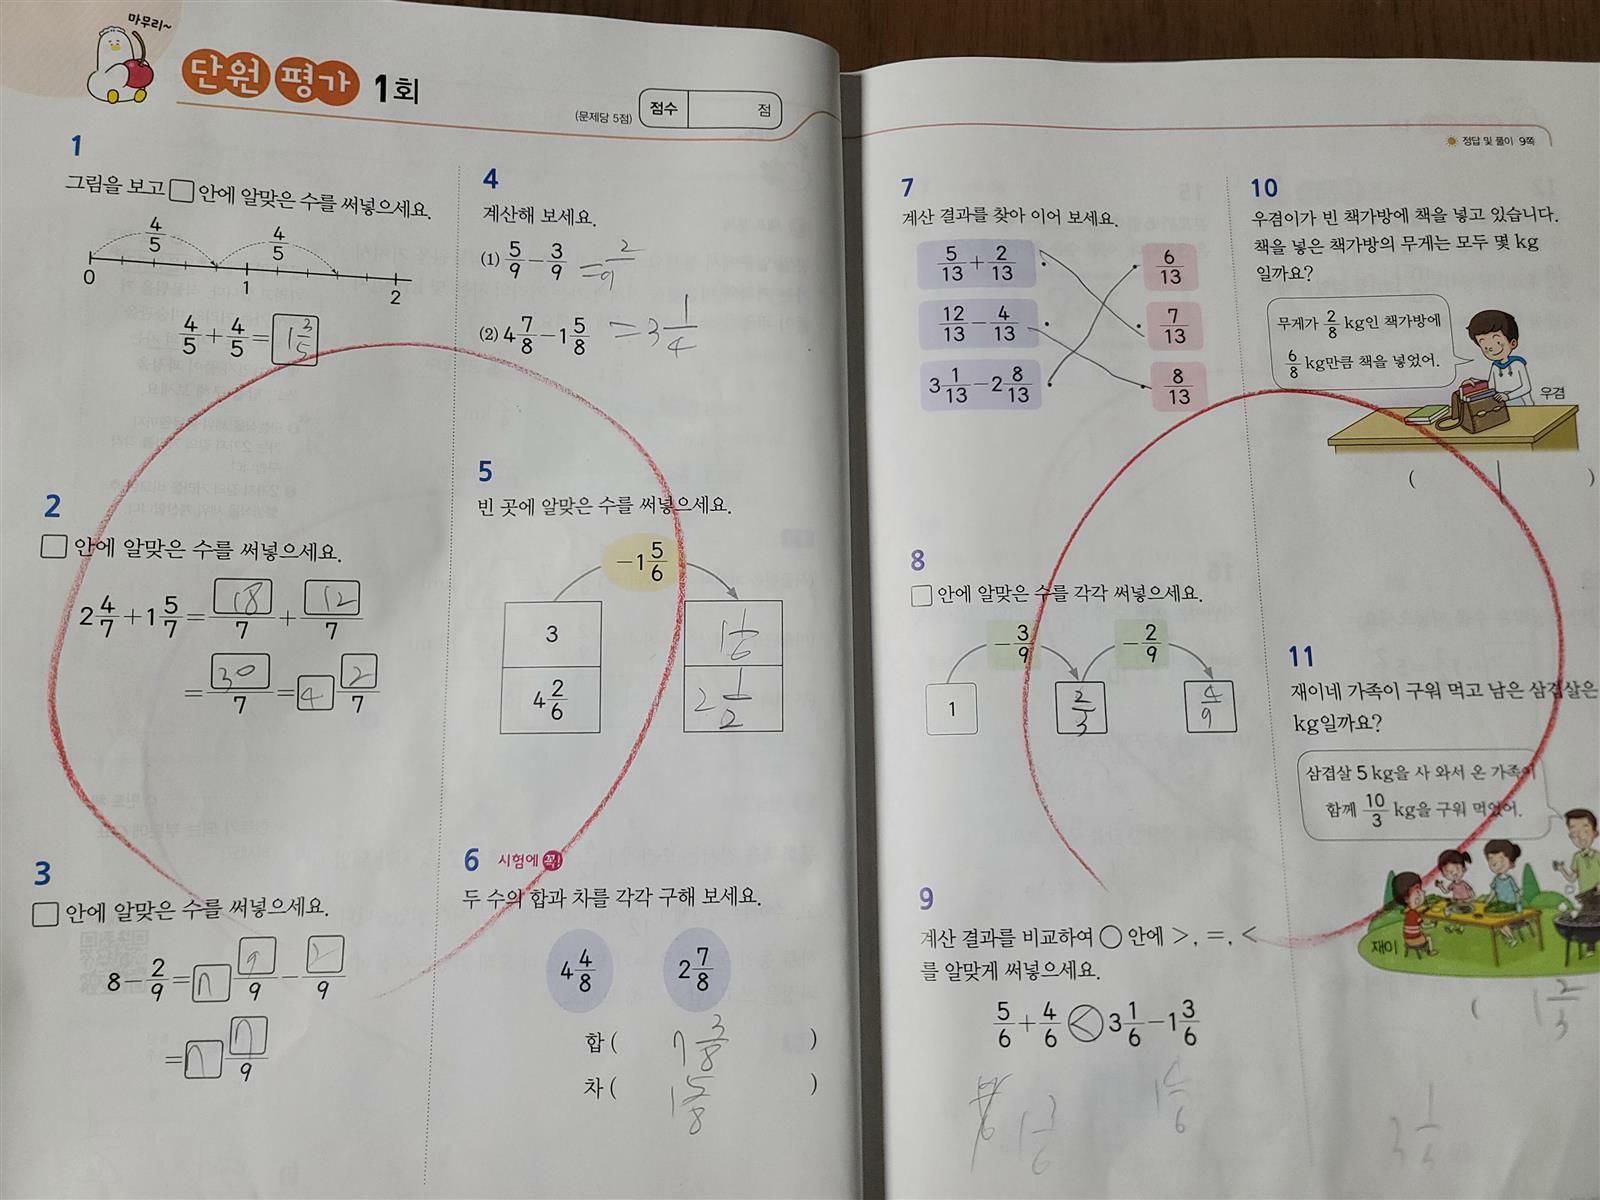 마무리~
단원 평가 1회
(문제당 5점)
점수 점
1
그림을 보고 □ 안에 알맞은 수를 써넣으세요.
4/5 4/5
0 1 2
4/5 + 4/5 = 1 3/5
2
□ 안에 알맞은 수를 써넣으세요.
2 4/7 + 1 5/7 = 18/7 + 12/7
= 30/7 = 4 2/7
3
□ 안에 알맞은 수를 써넣으세요.
8 - 2/9 = 7 9/9 - 2/9
= 7 7/9
4
계산해 보세요.
(1) 5/9 - 3/9 = 2/9
(2) 4 7/8 - 1 5/8 = 3 1/4
5
빈 곳에 알맞은 수를 써넣으세요.
-1 5/6
3 1 1/6
4 2/6 2 1/2
6 시험에 꼭!
두 수의 합과 차를 각각 구해 보세요.
4 4/8 2 7/8
합 ( 7 3/8 )
차 ( 1 5/8 )
정답 및 풀이 9쪽
7
계산 결과를 찾아 이어 보세요.
5/13 + 2/13 6/13
12/13 - 4/13 7/13
3 1/13 - 2 8/13 8/13
8
□ 안에 알맞은 수를 각각 써넣으세요.
-3/9 -2/9
1 2/3 4/9
9
계산 결과를 비교하여 ○ 안에 >, =, <
를 알맞게 써넣으세요.
5/6 + 4/6 < 3 1/6 - 1 3/6
1 3/6
10
우겸이가 빈 책가방에 책을 넣고 있습니다.
책을 넣은 책가방의 무게는 모두 몇 kg
일까요?
무게가 2/8 kg인 책가방에
6/8 kg만큼 책을 넣었어.
우겸
( 1 )
11
재이네 가족이 구워 먹고 남은 삼겹살은
kg일까요?
삼겹살 5 kg을 사 와서 온 가족이
함께 10/3 kg을 구워 먹었어.
재이
( 1 2/3